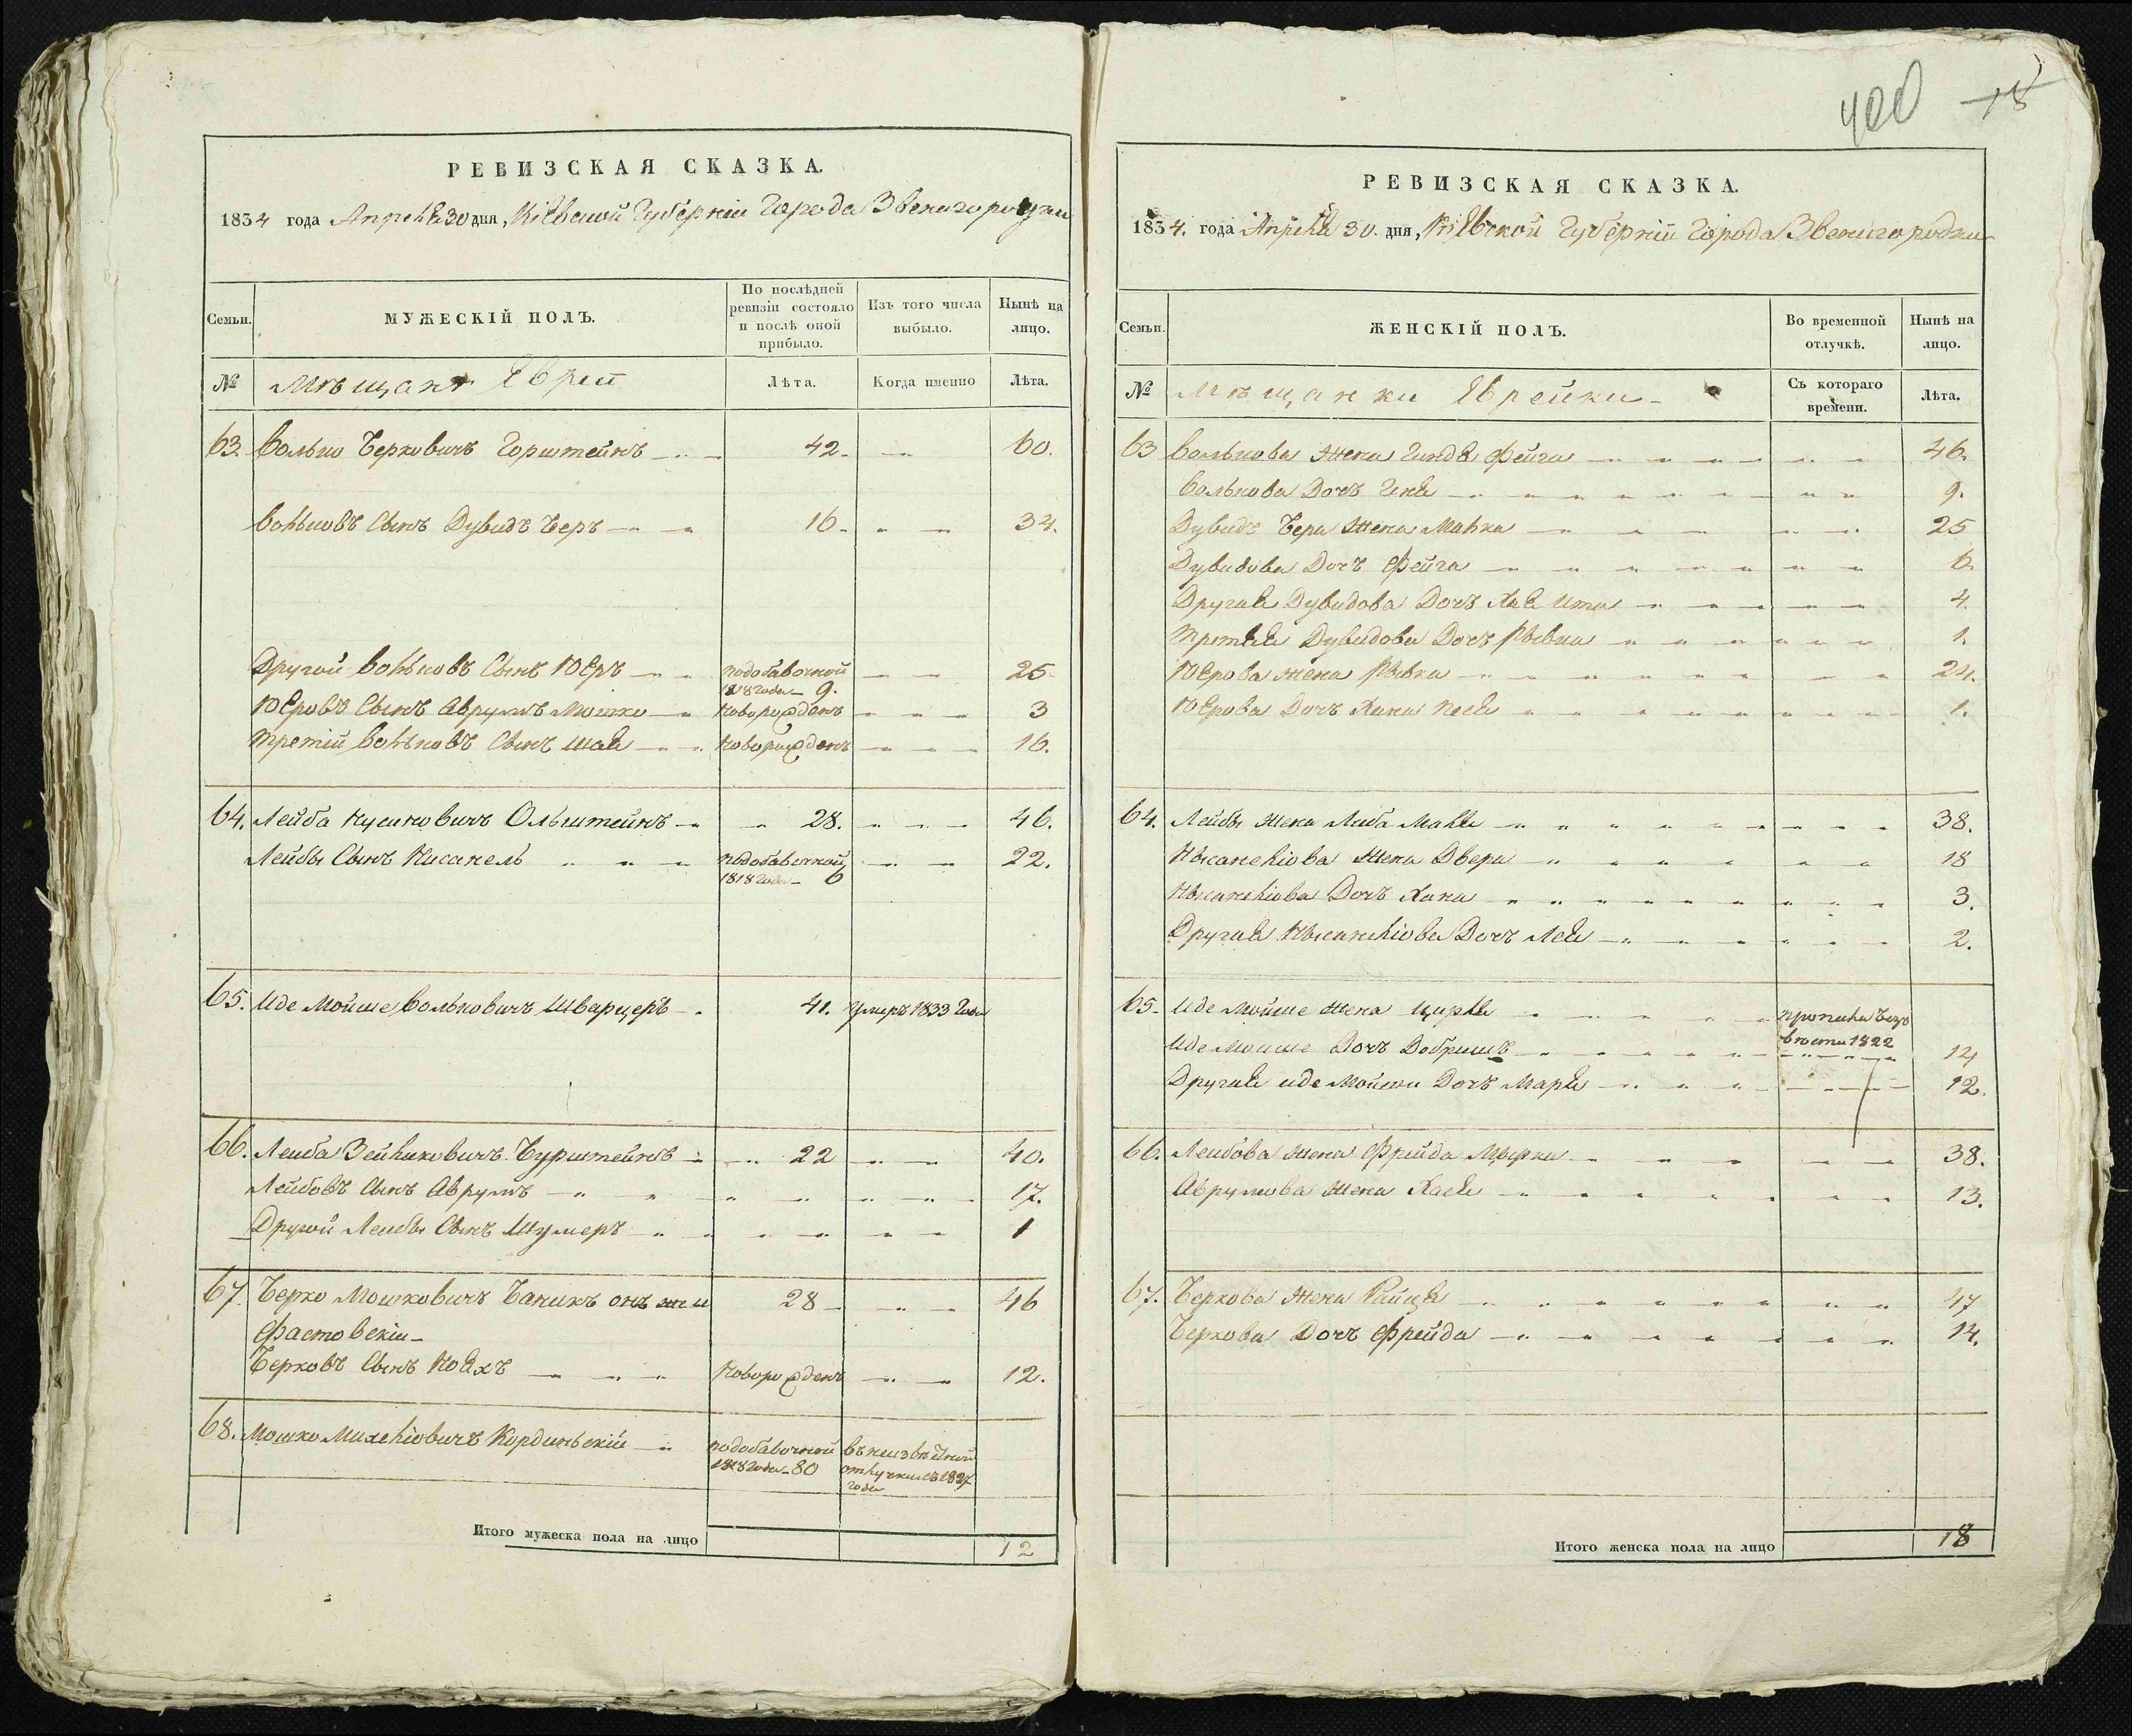 400 18
РЕВИЗСКАЯ СКАЗКА.
1834 года Апреля 30 дня, Кіевской Губерніи Города Звенигородки
Семьи.
МУЖЕСКІЙ ПОЛЪ.
По послѣдней ревизіи состояло и послѣ оной прибыло.
Изъ того числа выбыло.
Нынѣ на лицо.
№ Мѣщанъ Евреи Лѣта. Когда именно Лѣта.
63. Волько Берковичъ Горштейнъ 42. 60.
Вольковъ Сынъ Дувидъ Беръ 16. 34.
Другой Вольковъ Сынъ Юеръ подобавочной 1818 года 9. 25.
Юеровъ Сынъ Аврумъ Мошко новорожденъ 3
Третій Вольковъ Сынъ Шая новорожденъ 16.
64. Лейба Нусиновичъ Ольштейнъ 28. 46.
Лейбы Сынъ Нисанель подобавочной 1818 года 6 22.
65. Иде Мойше Вольковичъ Шварцеръ 41. Умеръ 1833 Года
66. Леиба Зейликовичъ Бурштейнъ 22 40.
Лейбовъ Сынъ Аврумъ 17.
Другой Лейбы Сынъ Шумеръ 1
67. Берко Мошковичъ Баникъ онъ же и 28 46
Фастовскіи
Берковъ Сынъ Нояхъ новорожденъ 12.
68. Мошко Михеліовичъ Кордынскіи подобавочной 1818 года 80 въ неизвѣстной отлучки съ 1827 года
Итого мужеска пола на лицо 12
РЕВИЗСКАЯ СКАЗКА.
1834. года Апреля 30. дня, Кіевской Губерніи Города Звенигородки
Семьи.
ЖЕНСКІЙ ПОЛЪ.
Во временной отлучкѣ.
Нынѣ на лицо.
№ Мѣщанки Еврейки Съ котораго времени. Лѣта.
63 Волькова Жена Гинда Фейга 46.
Волькова Дочъ Геня 9.
Дувидъ Бера Жена Малка 25
Дувидова Дочъ Фейга 6.
Другая Дувидова Дочъ Хая Ита 4.
Третья Дувидова Дочъ Рывка 1.
Юерова Жена Рывка 24.
Юерова Дочъ Хана Песя 1.
64. Лейбы Жена Либа Маня 38.
Нысанеліова Жена Двера 18
Нысанеліова Дочъ Хана 3.
Другая Нысанеліова Дочъ Лея 2.
65. Иде Мойше Жена Цирля пропала безъ вѣсти 1822
Иде Моише Дочъ Добрышъ 14
Другая иде Мойши Дочъ Маря 12.
66. Леибова Жена Фрейда 38.
Аврумова Жена Хася 13.
67. Беркова Жена Райця 47
Беркова Дочъ Фрейда 14.
Итого женска пола на лицо 18